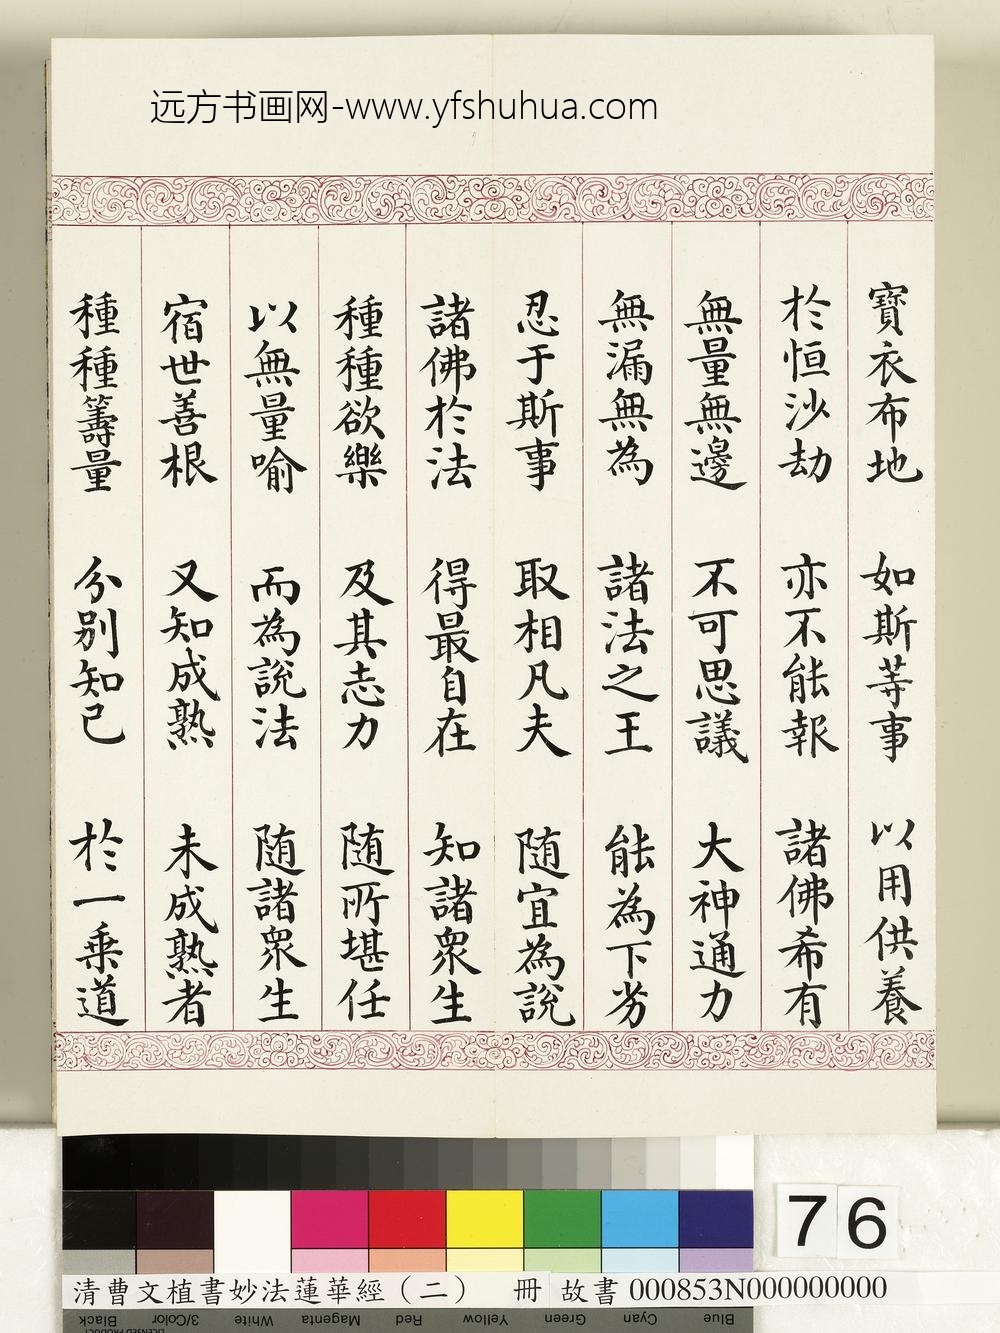 远方书画网-www.yfshuhua.com
寶衣布地 如斯等事 以用供養
於恒沙劫 亦不能報 諸佛希有
無量無邊 不可思議 大神通力
無漏無為 諸法之王 能為下劣
忍于斯事 取相凡夫 随宜為說
諸佛於法 得最自在 知諸眾生
種種欲樂 及其志力 随所堪任
以無量喻 而為說法 随諸眾生
宿世善根 又知成熟 未成熟者
種種籌量 分別知已 於一乗道
76
清曹文植書妙法蓮華經（二） 冊 故書 000853N000000000
Blue Cyan Green Yellow Red Magenta White 3/Color Black